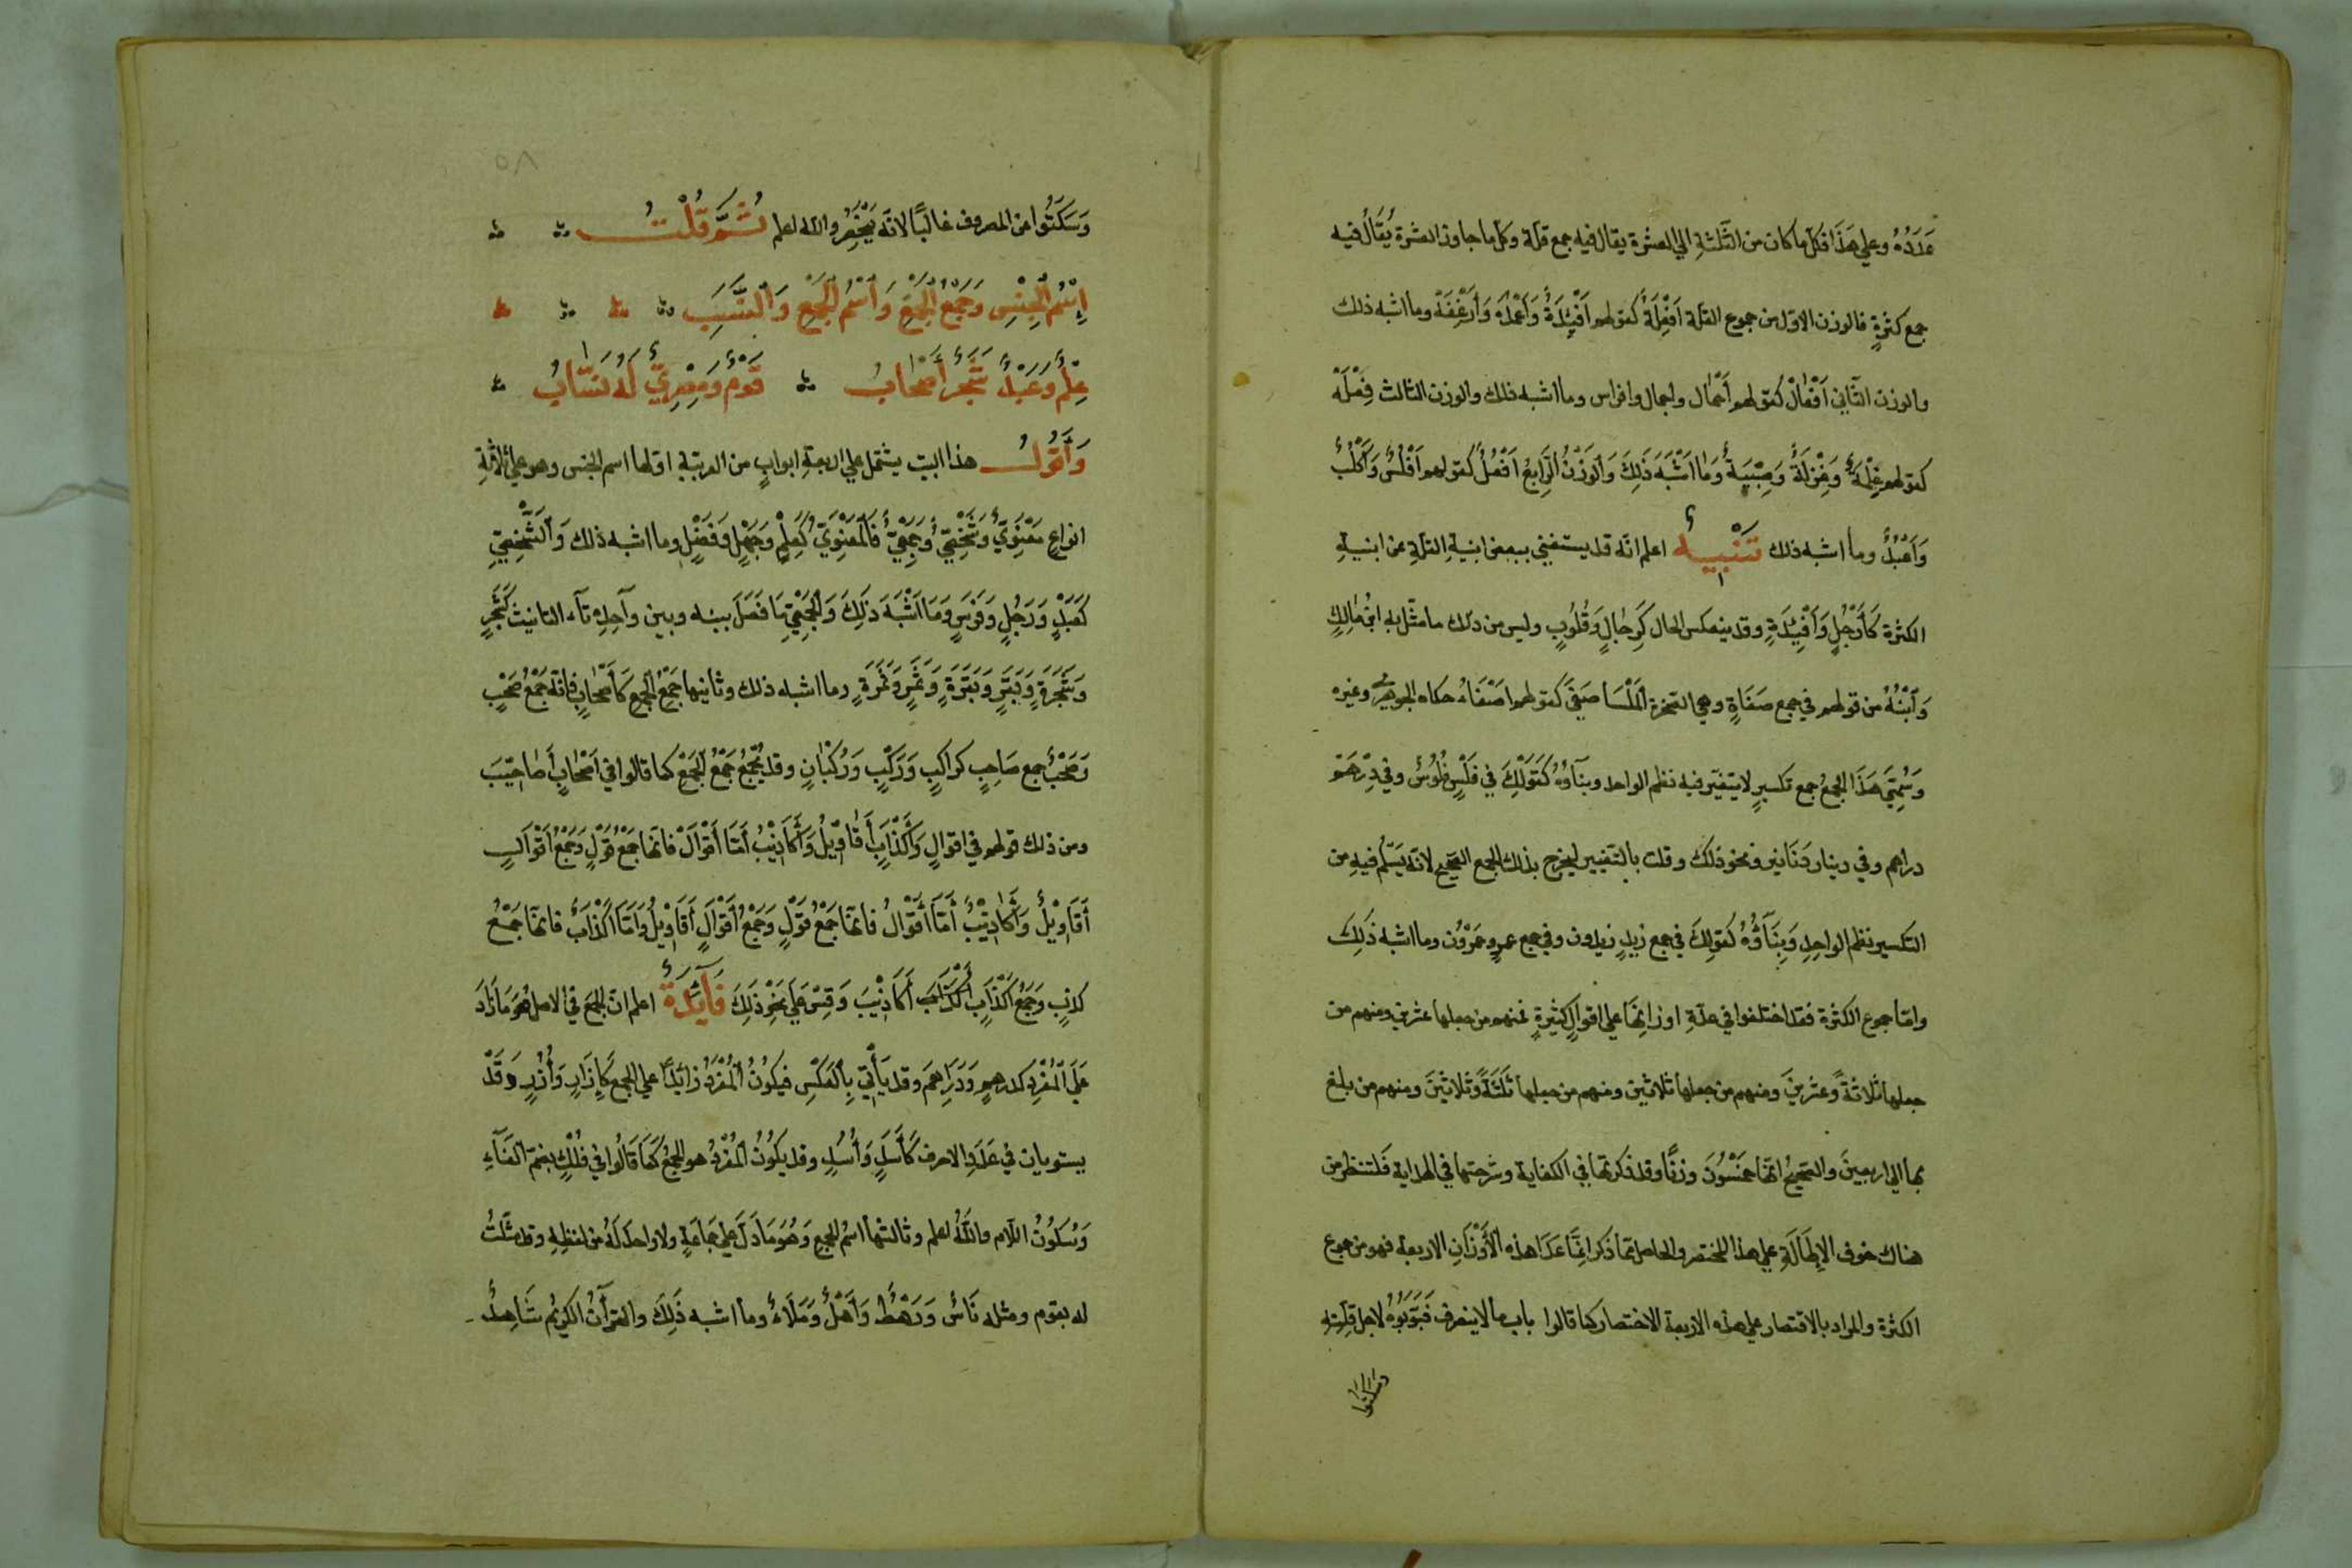 عَدَدُهُ وعلي هَذَا فكل ما كان من الثَّلثةِ الي العشرة يقال فيه جمع قلة وكل ما جاوز العشرة يُقَالُ فيه
جمع كثرةٍ فالوزن الاوّل من جموع القلة اَفْعِلَةٌ كقولهم اَفْئِدَةٌ وَاَعْمِدَة وَاَرْغِفَةٌ وما اشبه ذلك
والوزن الثّاني اَفْعَالٌ كقولهم اَحْمَال واجمال وافراس وما اشبه ذلك والوزن الثالث فِعْلَةٌ
كقولهم غِلْمَةٌ وَغِزْلَةٌ وَصِبْيَةٌ وَمَا اَشْبَهَ ذَلِكَ وَالوَزْنُ الرَّابِعُ اَفْعُلٌ كقولهم اَفْلُسٌ وَاَكْلُبٌ
وَاَعْبُدٌ وما اشبه ذلك تَنْبِيهٌ اعلم انّه قد يستغني ببعض ابنيةِ القلةِ عن ابنيةِ
الكثرة كَأَرْجُلٍ وَأَفْئِدَةٍ وقد ينعكس الحال كَرِجَالٍ وَقُلُوبٍ وليس من ذلك ما مثّل به ابنُ مَالِكٍ
وَابْنُهُ من قولهم في جمع صَفَاةٍ وهي الصّخرة المَلْسَا صُفِيّ كقولهم اَصْفَاء حكاه الجوهري وغيره
وَسُمِّيَ هَذَا الجَمعُ جمع تكسيرٍ لا يتغيّر فيه نظم الواحد وبنَاؤُهُ كَقَولِكَ في فَلْسٍ فُلُوسٌ وفي دِرْهَمٍ
دراهم وفي دينار دَنَانير ونحو ذلك وقلت بالتغيير ليخرج بذلك الجمع الصّحيح لانّه يَسْلَم فيهِ من
التكسير نظم الواحِدِ وَبِنَاؤُهُ كقولِكَ في جمع زيدٍ زيدون وفي جمع عمرٍو عمرون وما اشبه ذَلِكَ
وامّا جموع الكثرة فقد اختلفوا في عدّةِ اوزانِهَا علي اقوالٍ كثيرةٍ فمنهم من جعلها عشرين ومنهم من
جعلها ثلاثةً وعشرينَ ومنهم من جعلها ثلاثين ومنهم من جعلها ثَلَثَةً وَثلاثينَ ومنهم من بلغ
بها الي اربعينَ والصّحيحُ انّها خمْسُونَ وزنًا وقد ذكرتها في الكفاية وشرحتها في الهداية فلتنظر من
هناك خوف الاطَالَةِ علي هذا المختصر والحاصل مما ذَكر انَّ مَا عَدَا هذه الأَوْزَانِ الاربعة فهو من جموع
الكثرة والمراد بالاقتصار علي هذه الاربعة الاختصار كما قالوا باب ما لا ينصرف فَبَوَّبُوهُ لاجل قِلَّتِهِ
وسكتوا
٥٨
وَسَكَتُوا عن المصروف غالبًا لانّه يَنْحَصِرُ والله اعلم ثُمَّ قُلْتُ
إِسْمُ الجِنْسِ وَجَمْعُ الجَمْعِ وَاسْمُ الجَمْعِ وَالنَّسَبِ
عِلْمٌ وَعَبْدٌ شَجَرٌ أَصْحَابُ قَوْمٌ وَمِصْرِيٌّ لَهُ نَسَّابُ
وَأَقُولُ هذا البيت يشتمل علي اربعةِ ابوابٍ من العربية اوّلها اسم الجنس وهو علي ثلاثةِ
انواعٍ مَعْنَوِيٌّ وَشَخْصِيٌّ وَجَمْعِيٌّ فَالمَعْنَوِيُّ كَعِلْمٍ وَجَهْلٍ وَفَضْلٍ وما اشبه ذلك وَالشَّخْصِيّ
كَعَبْدٍ وَرَجُلٍ وَفَرَسٍ وَمَا اَشْبَهَ ذَلِكَ وَالجَمْعِيّ مَا فَصَلَ بينه وبين وآحِدِهِ تآء التانيث كَشَجَرٍ
وَشَجَرَةٍ وَبَقَرٍ وَبَقَرَةٍ وَثَمَرٍ وَثَمَرَةٍ وما اشبه ذلك وثانيها جَمْعُ الجمع كَأَصْحَابٍ فانّه جَمْعُ صَحْبٍ
وَصَحْبٌ جمع صَاحِبٍ كراكبٍ وَرَكْبٍ وَرُكْبَانٍ وقد يُجْمَعُ جَمْعُ الجَمْعِ كما قالوا في أَصْحَابٍ أَصَاحِيْبَ
ومن ذلك قولهم في اقوالٍ وَأَكْذَابٍ أَقَاوِيْلُ وَأَكَاذِيْبُ امّا أَقْوَالٌ فانّها جَمْعُ قَوْلٍ وَجَمْعُ اَقْوَالٍ
أَقَاوِيْلُ وَأَكَاذِيْبُ أَمَّا أَقْوَالُ فانّها جَمْعُ قَوْلٍ وَجَمْعُ أَقْوَالٍ أَقَاوِيْلُ وَأَمَّا أَكْذَابُ فانّها جَمْعُ
كذبٍ وَجَمْعُ أَكْذَابٍ أَكَاذِيْبَ وَقِسْ عَلَي نَحْوِ ذَلِكَ فَآئِدَةٌ اعلم انّ الجَمعَ في الاصل هُوَ مَا زَادَ
عَلَي المُفْرَدِ كدرهمٍ وَدَرَاهِمَ وقد يَأْتِي بِالعَكْسِ فيكُونُ المُفْرَدُ زَائِدًا علي الجمع كَإِزَارٍ وَأُزُرٍ وَقَدْ
يستويان في عَدَدِ الاحرف كَأَسَدٍ وَأُسُدٍ وقد يكُونُ المُفْرَدُ هو الجمعُ كَمَا قَالُوا في فُلْكٍ بضمّ الفَآءِ
وَسُكُونُ اللّام واللّهُ اعلم وثالثها اسْمُ الجمعِ وَهُوَ مَا دَلَّ علي جَمَاعَةٍ ولا واحدَ لَهُ من لفظِهِ وقد مثّلتُ
له بقوم ومثله نَاسٌ وَرَهْطٌ وَأَهْلٌ وَمَلَاءٌ وما اشبه ذَلِكَ والقرآنُ الكريْم شَاهِدٌ